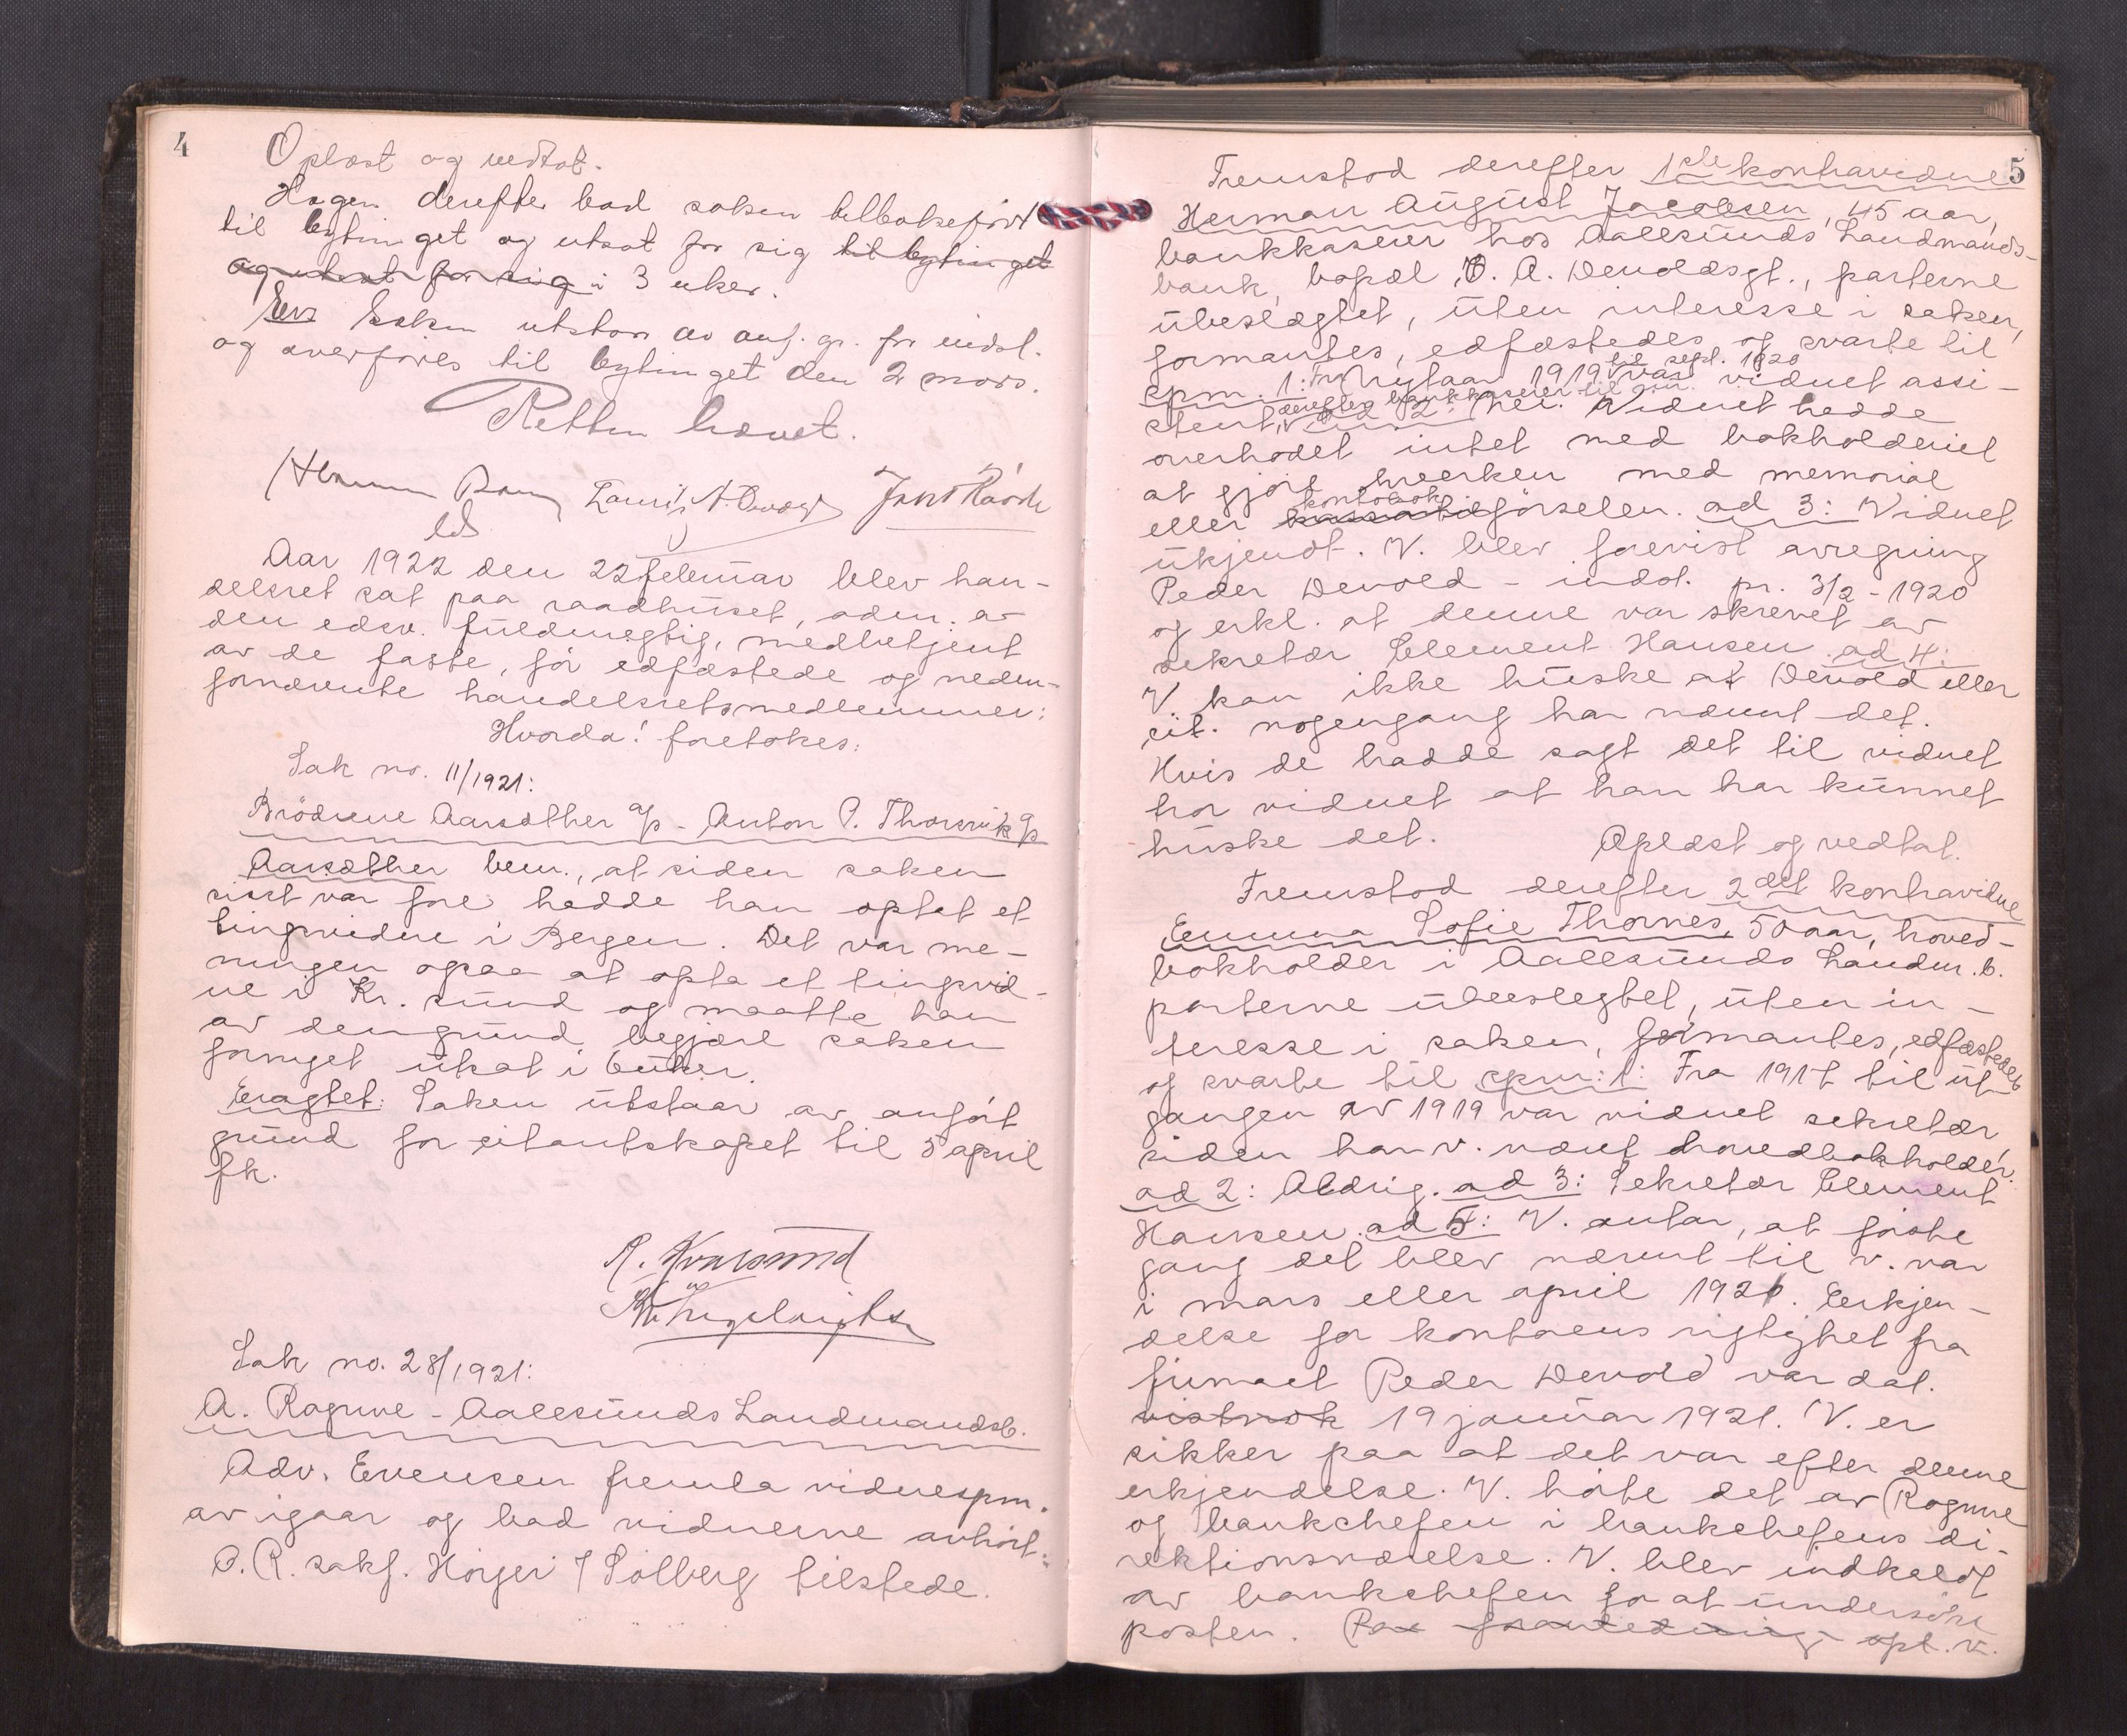 4
Oplæst og vedtat.
Hagen derefter bad saken tilbakeført
til bytinget og utsat for sig til bytinget
og utsat for sig i 3 uker.
Er: Saken utstaar av anf. gr. for indst.
og overføres til bytinget den 2 mars.
Retten hævet.
Aar 1922 den 22 februar blev han-
delsret sat paa raadhuset, adm. av
den edsv. fuldmegtig, medbetjent
av de faste, før edfæstede og neden-
fornævnte handelsretsmedlemmer:
Hvorda! foretokes:
Sak no. 11/1921:
Brødrene Aarsæther a/s - Anton P. Thorsvik a/s
Aarsæther bem., at siden saken
sist var fore hadde han optat et
tingsvidne i Bergen. Det var me-
ningen ogsaa at opta et tingsvid-
ne i Kr. sund og maatte han
av den grund begjære saken
fornyet utsat i 6 uker.
Eragtet: Saken utstaar av anført
grund for citantskapet til 5 april
fk.
Sak no. 28/1921:
A. Rogne - Aalesunds Landmandsb.
Adv. Evensen fremla vidnespm.
av igaar og bad vidnerne avhørt.
O.R. sakf. Høyer f Solberg tilstede.
5
Fremstod derefter 1ste kontravidne
Herman August Jacobsen, 45 aar,
bankkaserer hos Aallesunds Landmands-
bank, bopæl O. A. Devoldsgt., parterne
ubeslægtet, uten interesse i saken,
formantes, edfæstedes og svarte til
spm. 1: Fra nytaar 1919 til sept. 1920 var vidnet assi-
stent, derefter bankkaserer til nu. ad 2: Nei. Vidnet hadde
overhodet intet med bokholderiet
at gjøre hverken med memorial
eller kontobokførselen. ad 3: Vidnet
ukjendt. V. blev forevist avregning
Peder Devold - indst. pr. 3/2 - 1920
og erkl. at denne var skrevet av
sekretær Clement Hansen. ad 4:
V kan ikke huske at Devold eller
cit. nogengang har nævnt det.
Hvis de hadde sagt det til vidnet
tror vidnet at han har kunnet
huske det. Oplæst og vedtat.
Fremstod derefter 2det kontravidne
Emma Sofie Thornes, 50 aar, hoved-
bokholder i Aallesunds Landm.b.
parterne ubeslegtet, uten in-
teresse i saken, formantes, edfæstedes
og svarte til spm: 1: Fra 1917 til ut-
gangen av 1919 var vidnet sekretær,
siden har v. været hovedbokholder.
ad 2: Aldrig. ad 3: Sekretær Clement
Hansen. ad 4: V. antar, at første
gang det blev nævnt til v. var
i mars eller april 1921. Erkjen-
delse for kontoens rigtighet fra
firmaet Peder Devold var dat.
vistnok 19 januar 1921. V. er
sikker paa at det var efter denne
erkjendelse. V. hørte det av Rogne
og bankchefen i bankchefens di-
rektionsværelse. V. blev indkaldt
av bankchefen for at undersøke
posten. Paa foranledning opl. v.